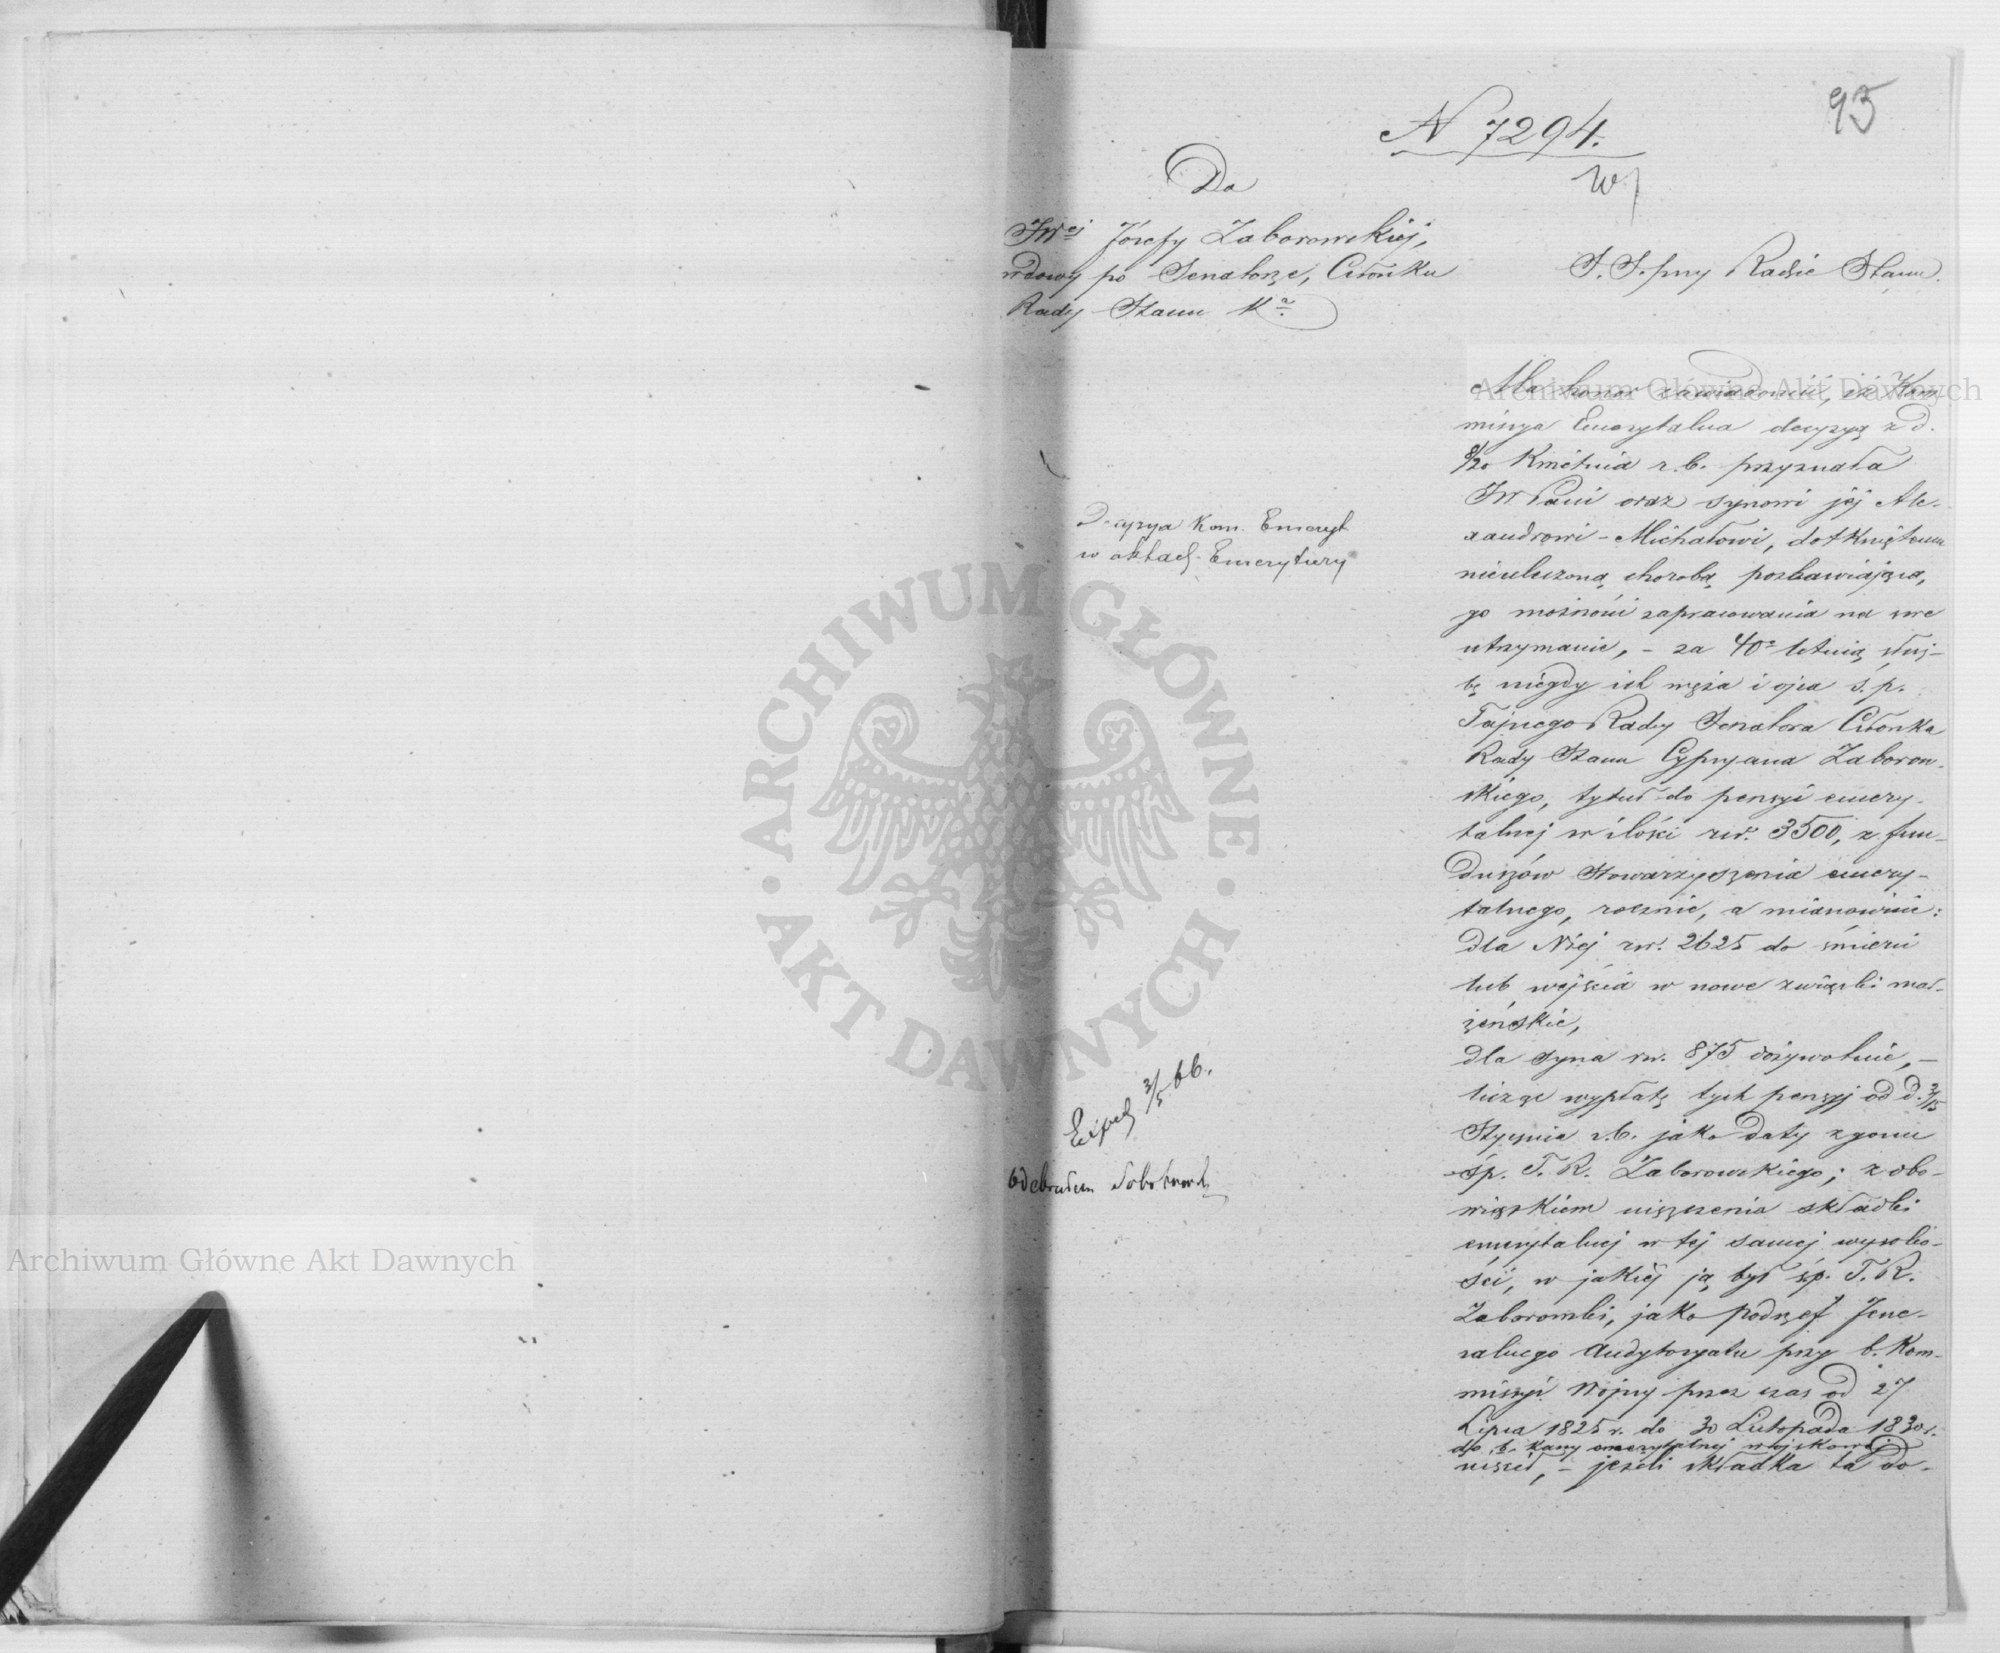 93
N 7294.
W
Do
JWej Józefy Zaborowskiej,
wdowy po Senatorze, Członku
Rady Stanu
S. S. przy Radzie Stanu.
Ma honor zawiadomić, iż Kom-
missya Emerytalna decyzyą z d.
8/20 Kwietnia r. b. przyznała
JW Pani oraz synowi jej Ale-
xandrowi-Michałowi, dotkniętemu
nieuleczoną chorobą pozbawiającą
go możności zapracowania na swe
utrzymanie, - za 40o letnią służ-
bę niegdy ich męża i ojca ś. p.
Tajnego Radcy Senatora Członka
Rady Stanu Cypryana Zaborow-
skiego, tytuł do pensyi emery-
talnej w ilości rsr. 3500, z fun-
duszów Stowarzyszenia emery-
talnego, rocznie, a mianowicie:
dla Niej rsr. 2625 do śmierci
lub wejścia w nowe związki mał-
żeńskie,
dla syna rsr. 875 dożywotnie, -
licząc wypłatę tych pensyj od d. 3/15
Stycznia r. b. jako daty zgonu
śp. T. R. Zaborowskiego; z obo-
wiązkiem uiszczenia składki
emerytalnej w tej samej wysoko-
ści, w jakiej ją był śp. T. R.
Zaborowski, jako podszef Jene-
ralnego Audytoryatu przy b. Kom-
missyi Wojny przez czas od 27
Lipca 1825 r. do 30 Listopada 1830 r.
do b. kassy emerytalnej wojskowej
uiszcił, - jeżeli składka ta do-
Decyzya Kom. Emeryt.
w aktach Emerytury
Exped 3/5 66.
Odebrałem
Archiwum Główne Akt Dawnych
Archiwum Główne Akt Dawnych
ARCHIWUM GŁÓWNE
AKT DAWNYCH